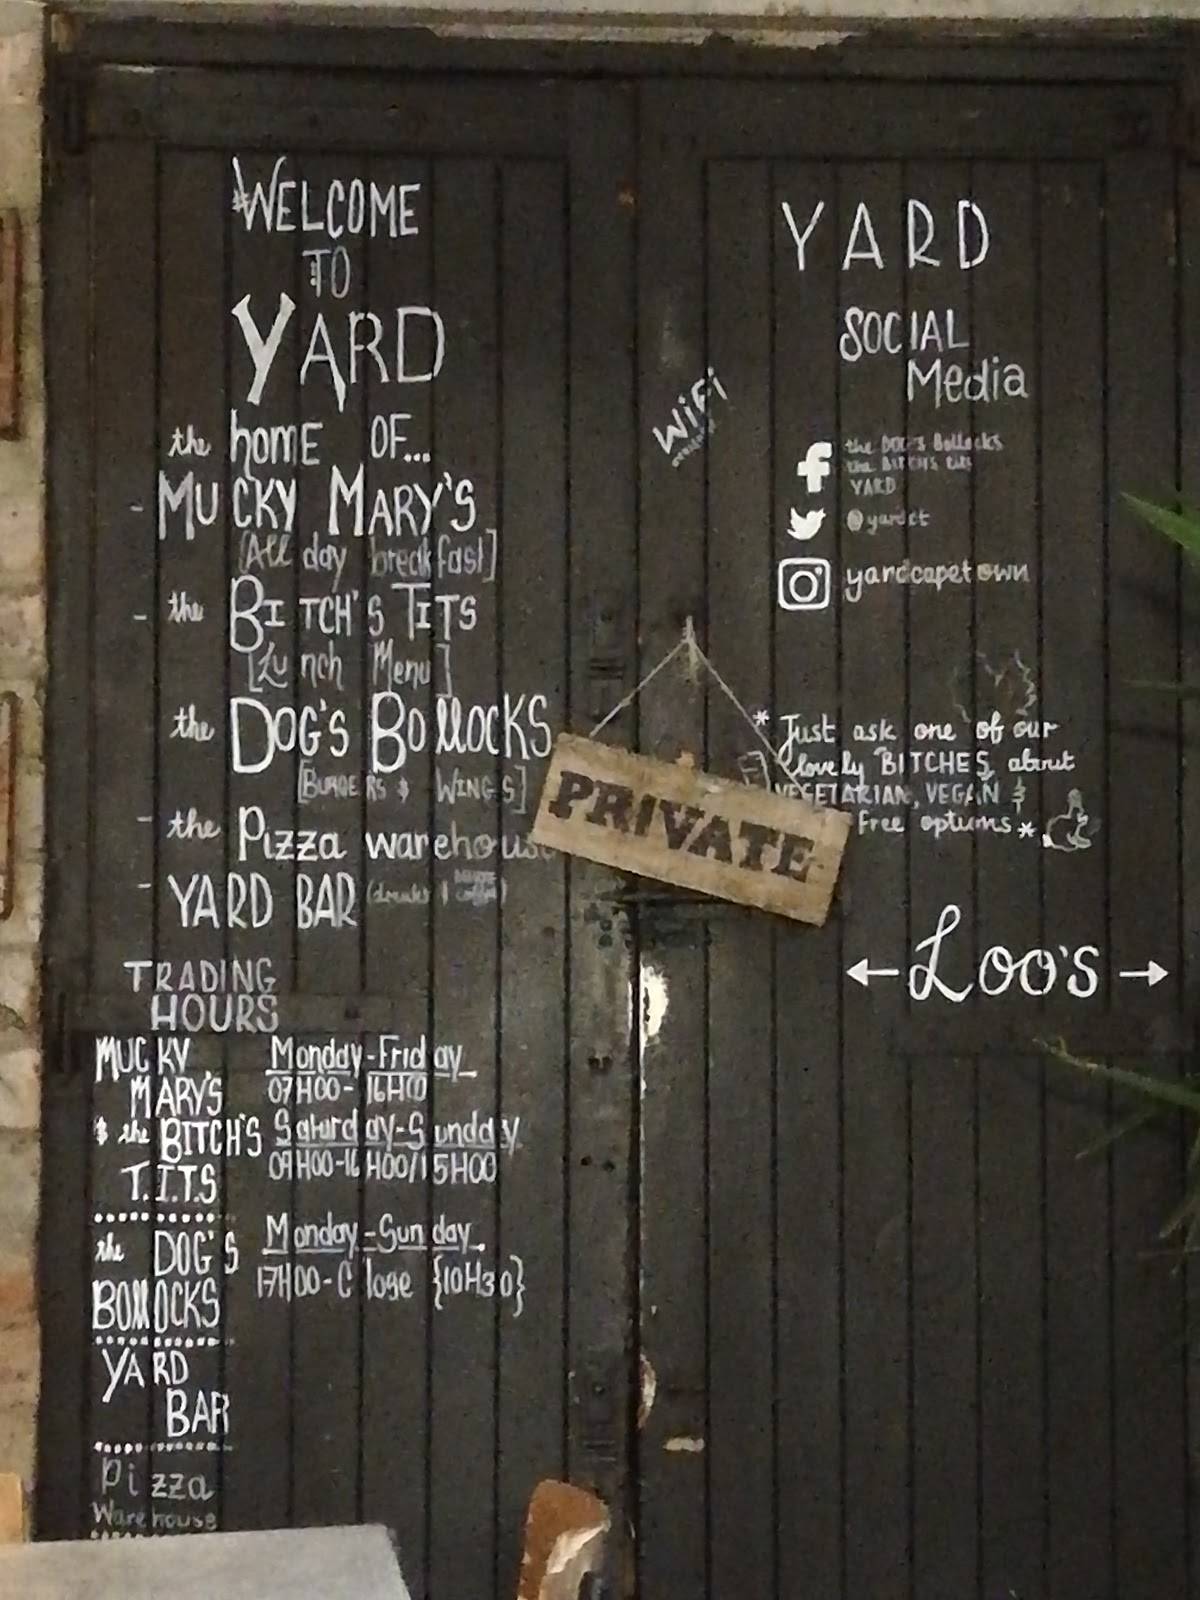 WELCOME
TO
YARD
the home OF...
- MUCKY MARY'S
[All day breakfast]
- the BITCH'S TITS
[Lunch Menu]
the DOG'S BOllOCKS
[BURGERS & WINGS]
- the Pizza warehouse
- YARD BAR (drinks & coffee)
TRADING
HOURS
MUCKY
MARY'S
& the BITCH'S
T.I.T.S
Monday-Friday
07H00-16H00
Saturday-Sunday
09H00-16H00/15H00
the DOG'S
BOllOCKS
Monday-Sunday
17H00-Close {10H30}
YARD
BAR
Pizza
Warehouse
WiFi
PRIVATE
YARD
SOCIAL
Media
the DOG'S Bollocks
the BITCH'S tits
YARD
@yardct
yardcapetown
*Just ask one of our
lovely BITCHES about
VEGETARIAN, VEGAN &
Free options*
← LOO'S →